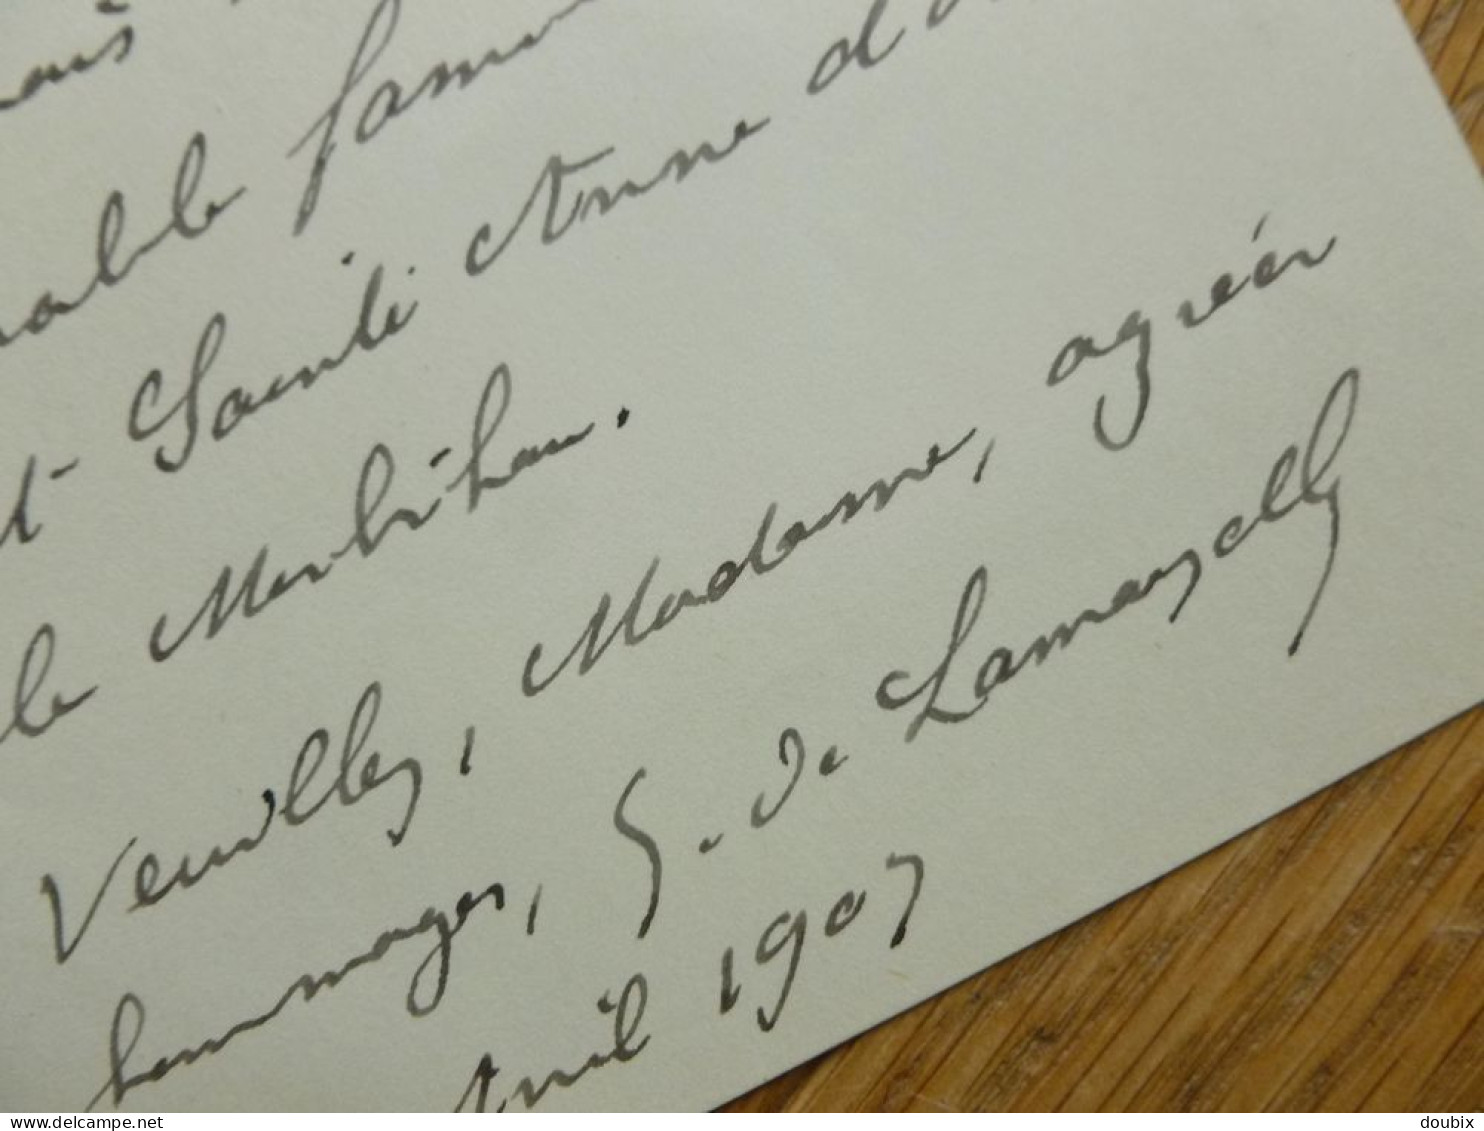 Sainte Anne d'
le Morbihan.
Veuillez, Madame, agréer
hommages, G. de Lamarzelle
Avril 1907
delcampe.net
doubix